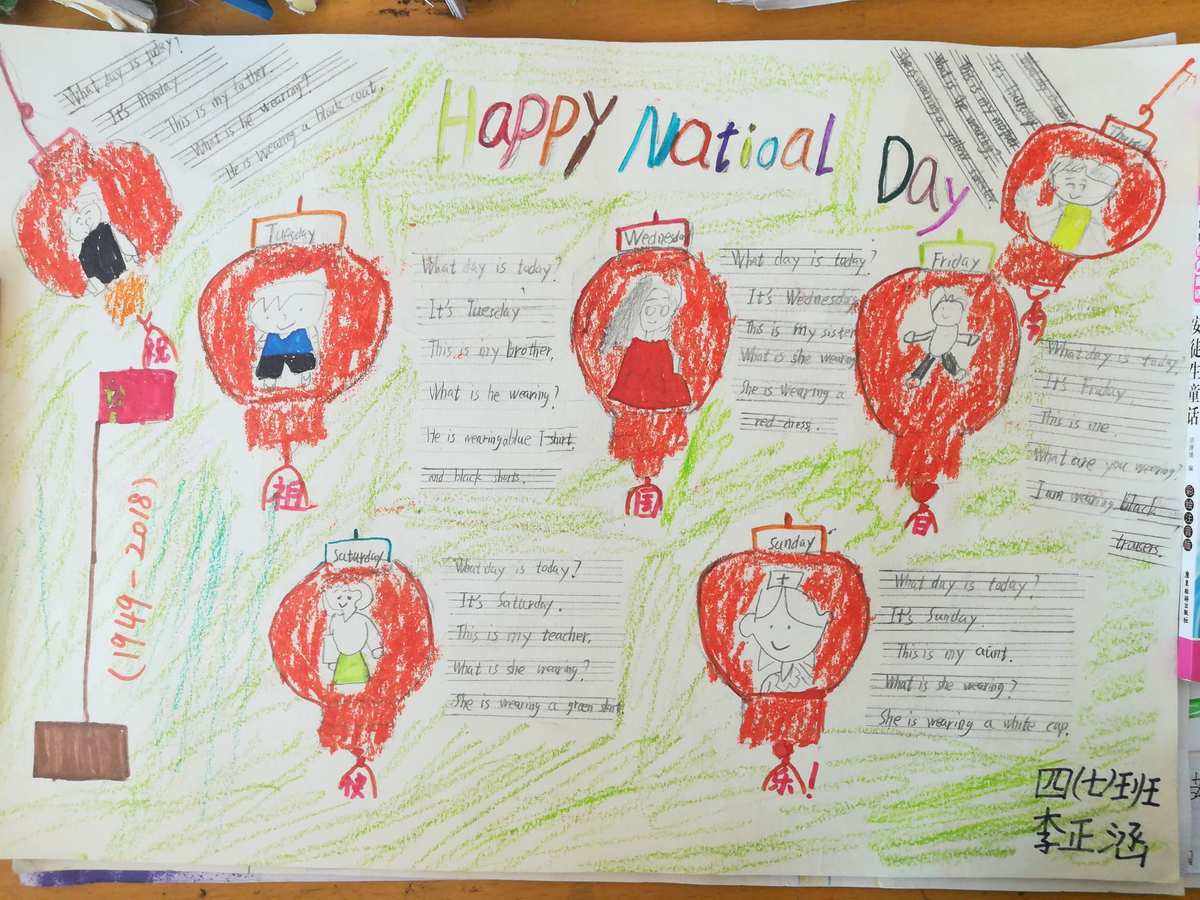 What day is today?
It's Monday
This is my father.
What is he wearing?
He is wearing a black coat.
Happy Natioal Day
What is he wearing?
Tuesday
What day is today?
It's Tuesday
This is my brother.
What is he wearing?
He is wearing a blue T-shirt
and black shorts.
Wednesday
What day is today?
It's Wednesday
This is my sister
What is she wearing
She is wearing a
red dress.
Friday
What day is today.
It's Friday
This is me
What are you wearing?
I am wearing black
trousers.
祝
祖
国
(1949-2018)
Saturday
What day is today?
It's Saturday.
This is my teacher.
What is she wearing?
She is wearing a green
快
Sunday
What day is today?
It's Sunday.
This is my aunt.
What is she wearing?
She is wearing a white cap.
乐!
四(七)班
李正涵
安徒生童话